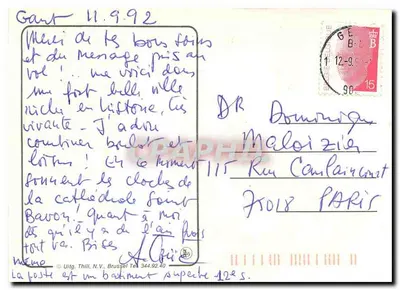 Gant 11.9.92
Merci de tes bons soins
et du message pris au
vol! .. me voici dans
une fort belle ville
riche en histoire, très
vivante. J'adore
combiner boulot et
loisirs! En ce moment
sonnent les cloches de
la cathédrale Saint
Bavon! Quant à moi
dès qu'il y a de l'air frais
tout va. Bises
même
La poste est un bâtiment superbe
DR Dominique
Maloizier
115 Rue Caulaincourt
75018 PARIS
12-9
15
B
© Uitg. Thill, N.V., Brussel Tel. 344.92.40
CPAPHIL